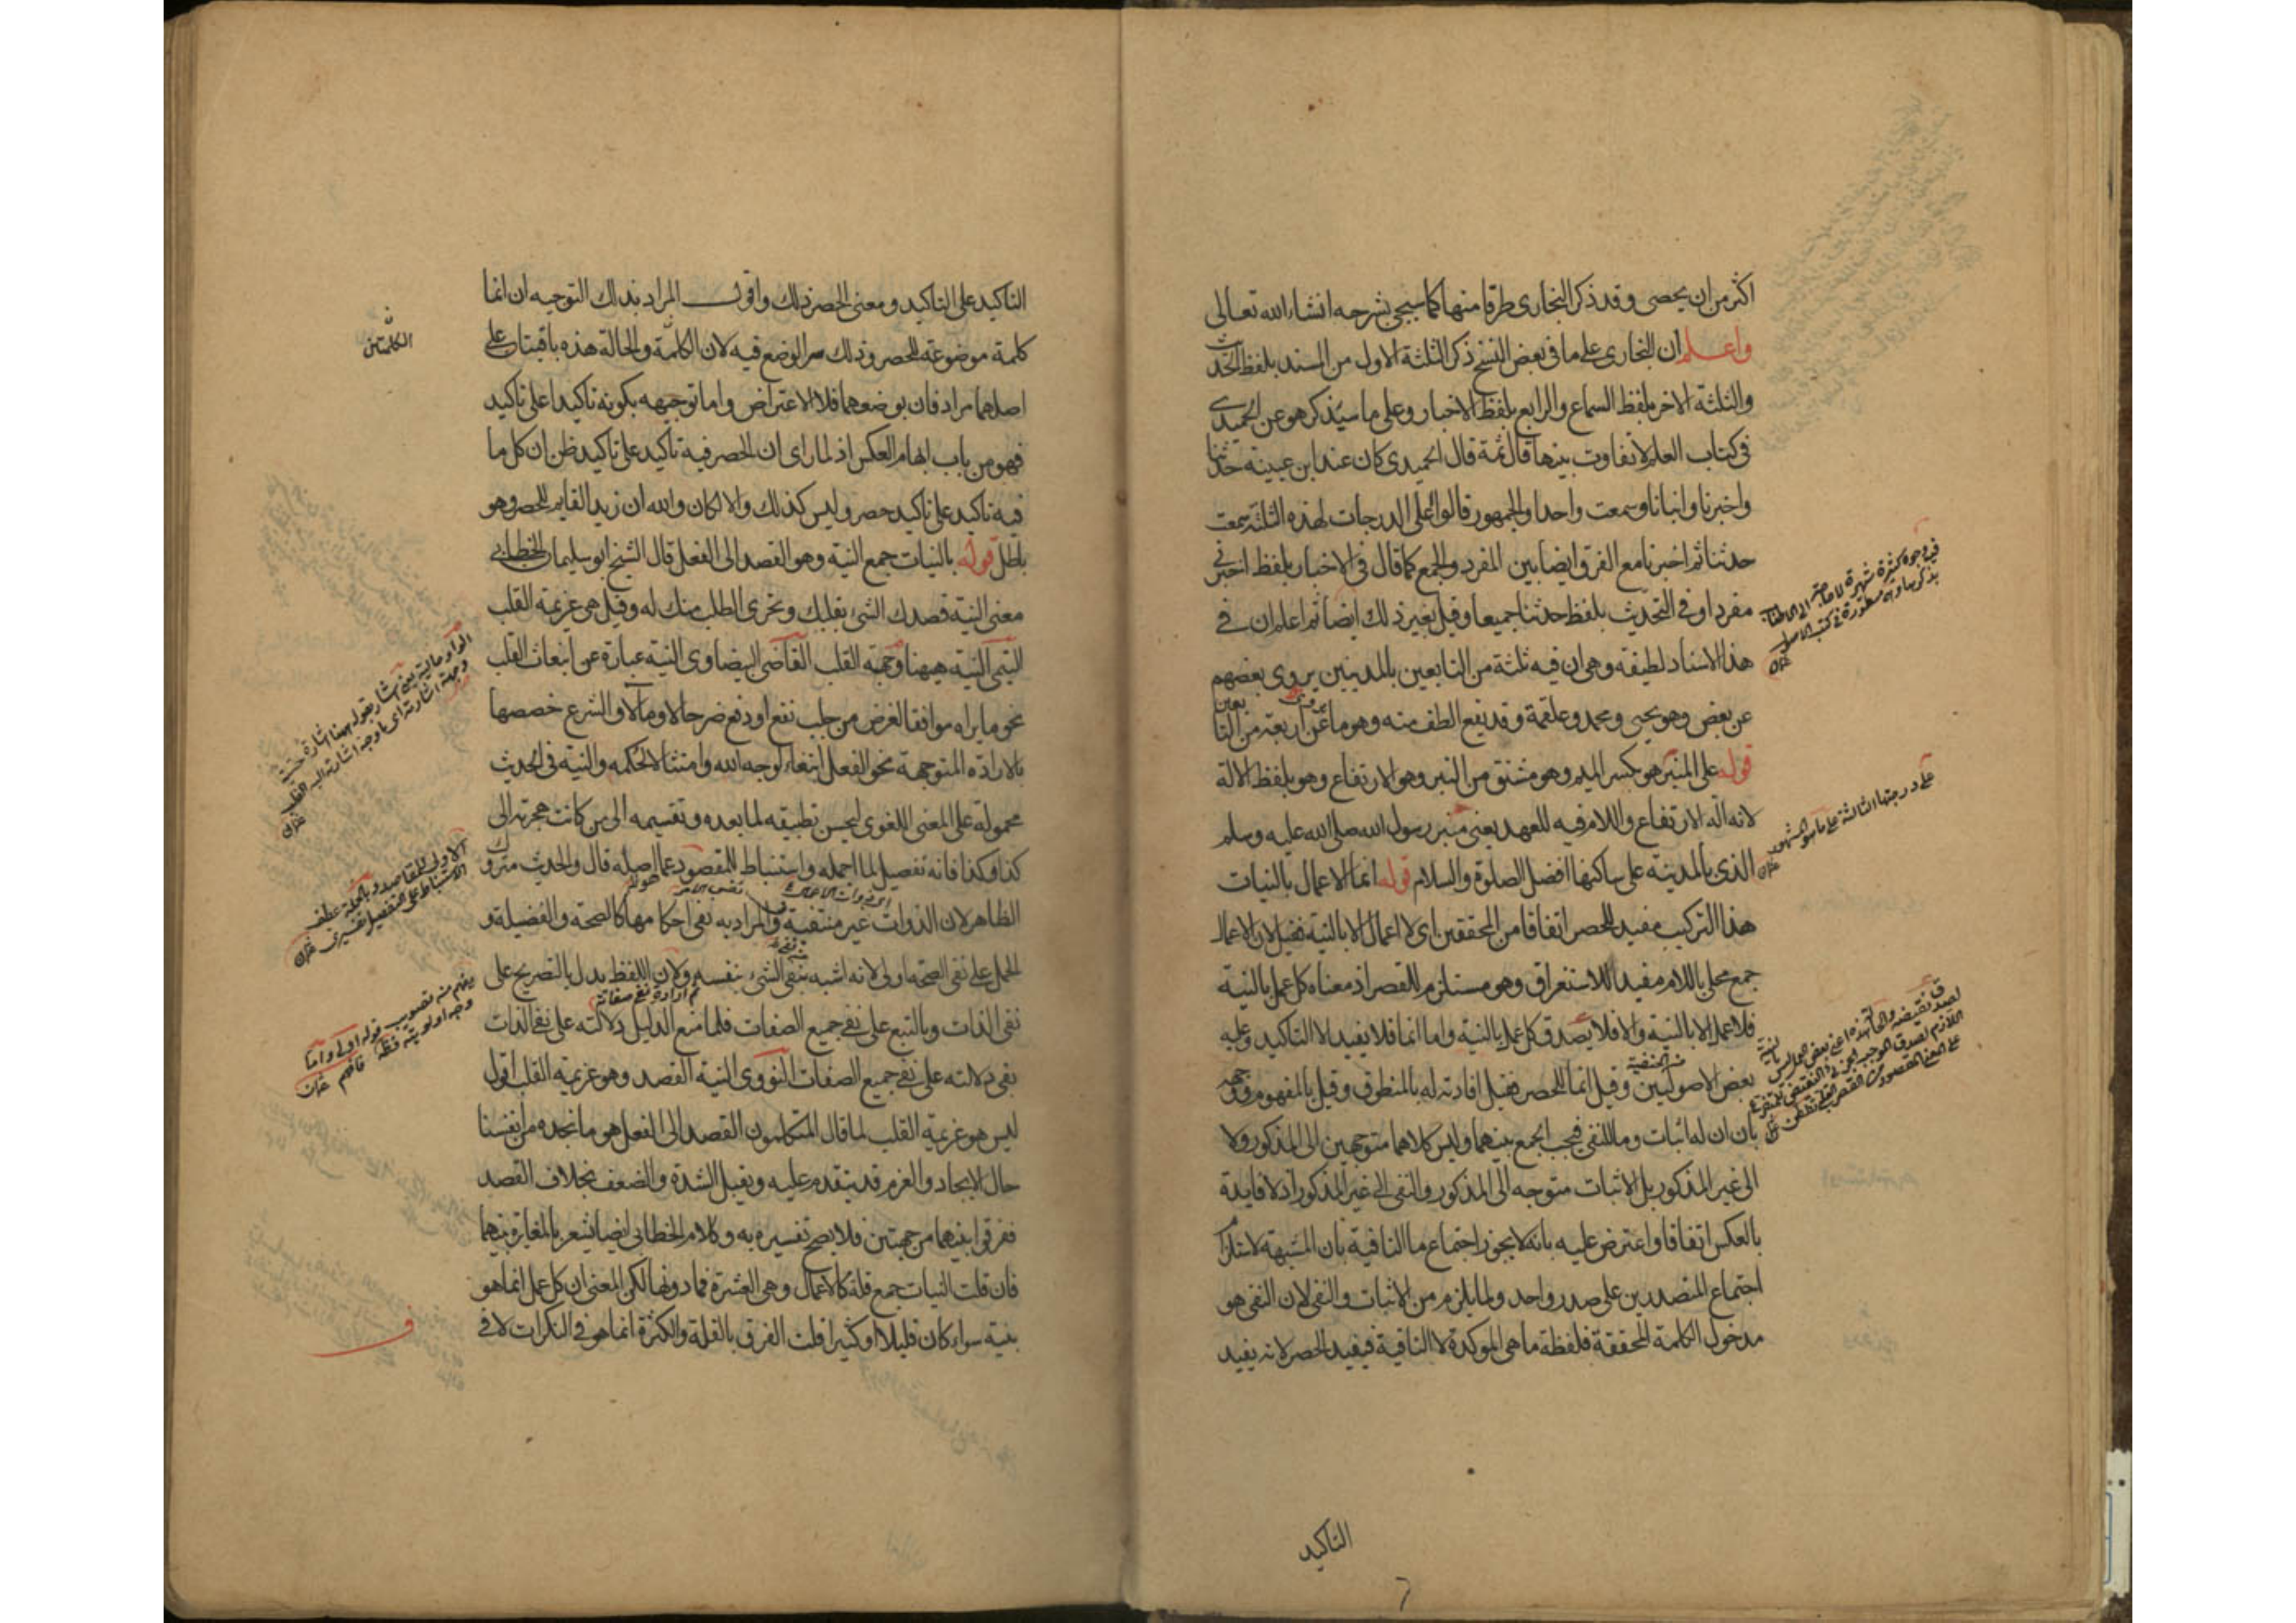 اكثر من ان يحصى وقد ذكر البخارى طرقا منها كما سيجئ بشرحه انشاء الله تعالى
واعلم ان البخارى على ما فى بعض النسخ ذكر الثلثة الاول من المسند بلفظ التحديث
والثلثة الاخر بلفظ السماع والرابع بلفظ الاخبار وعلى ما سيذكر هو عن الحميدى
فى كتاب العلم لا تفاوت بينها قال ثمة قال الحميدى كان عند ابن عيينة حدثنا
واخبرنا وانبانا وسمعت واحدا والجمهور قالوا اعلى الدرجات لهذه الثلثة سمعت
حدثنا ثم اخبرنا مع الفرق ايضا بين المفرد والجمع كما قال فى الاخبار بلفظ اخبرنى
مفردا وفى التحديث بلفظ حدثنا جميعا وقيل بغير ذلك ايضا ثم اعلم ان فى
هذا الاسناد لطيفة وهى ان فيه ثلثة من التابعين بالمدنيين يروى بعضهم
عن بعض وهو يحيى ومحمد وعلقمة وقد يقع الطف منه وهو ما عن اربعة من التابعين
قوله على المنبر هو بكسر الميم وهو مشتق من النبر وهو الارتفاع وهو بلفظ الالة
لانه الة الارتفاع واللام فيه للعهد يعنى منبر رسول الله صلى الله عليه وسلم
الذى بالمدينة على ساكنها افضل الصلوة والسلام قوله انما الاعمال بالنيات
هذا التركيب مفيد للحصر اتفاقا من المحققين اى لا اعمال الا بالنية فقيل لان الاعمال
جمع محلى باللام مفيد للاستغراق وهو مستلزم للقصر اذ معناه كل عمل بالنية
فلا عمل الا بالنية والا فلا يصدق كل عمل بالنية واما انما فلا يفيد الا التاكيد وعليه
بعض الاصوليين وقيل انما للحصر فقيل افادته له بالمنطوق وقيل بالمفهوم ووجهه
بان ان له اثبات وما للنفى فيجب الجمع بينهما وليس كلاهما متوجهين الى المذكور ولا
الى غير المذكور بل الاثبات متوجه الى المذكور والنفى الى غير المذكور اذ لا فايدة
بالعكس اتفاقا واعترض عليه بانه لا يجوز اجتماع ما النافية بان المشبهة لاستلزام
اجتماع المتصدرين على صدر واحد ولما يلزم من الاثبات والنفى لان النفى هو
مدخول الكلمة المحققة فلفظة ما هى الموكدة لا النافية فيفيد الحصر لانه يفيد
التاكيد
على درجتها الثالثة على ما هو المشهور
من الحنفية
التاكيد على التاكيد ومعنى الحصر ذلك واقول المراد بذلك التوجيه ان انما
كلمة موضوعة للحصر وذلك سر الوضع فيه لان الكلمة والحالة هذه باقيتان على
اصلهما مراد فان بوضعهما فلا الاعتراض واما توجيهه بكونه تاكيدا على تاكيد
فهو من باب ايهام العكس اذ لما راى ان الحصر فيه تاكيد على تاكيد ظن ان كل ما
فيه تاكيد على تاكيد حصر وليس كذلك والا لكان والله ان زيدا لقايم للحصر وهو
باطل قوله بالنيات جمع النية وهو القصد الى الفعل قال الشيخ ابو سليمان الخطابى
معنى النية قصدك الشئ بقلبك وتحرى الطلب منك له وقيل هى عزيمة القلب
التيمى النية هيهنا وجهة القلب القاضى البيضاوى النية عبارة عن انبعاث القلب
نحو ما يراه موافقا لغرض من جلب نفع او دفع ضر حالا ومآلا والشرع خصصها
بالارادة المتوجهة نحو الفعل ابتغاء لوجه الله وامتثالا لحكمه والنية فى الحديث
محمولة على المعنى اللغوى ليحسن تطبيقه لما بعده وتقسيمه الى من كانت هجرته الى
كذا وكذا فانه تفصيل لما اجمله واستنباط للمقصود عما اصله قال والحديث متروك
الظاهر لان الذوات غير منتفية والمراد به نفى احكامها كالصحة والفضيلة و
الحمل على نفى الصحة اولى لانه اشبه بنفى الشئ نفسه ولان اللفظ يدل بالتصريح على
نفى الذات وبالتبع على نفى جميع الصفات فلما منع الدليل دلالته على نفى الذات
بقى دلالته على نفى جميع الصفات النووى النية القصد وهو عزيمة القلب اقول
ليس هو عزيمة القلب لما قال المتكلمون القصد الى الفعل هو ما نجده من انفسنا
حال الايجاد والعزم قد يتقدم عليه ويقبل الشدة والضعف بخلاف القصد
ففرقوا بينهما من جهتين فلا يصح تفسيره به وكلام الخطابى ايضا يشعر بالمغايرة بينهما
فان قلت النيات جمع قلة كالاعمال وهى العشرة فما دونها لكن المعنى ان كل عمل انما هو
بنية سواء كان قليلا او كثيرا قلت الفرق بالقلة والكثرة انما هو فى النكرات لا فى
الكلمتين